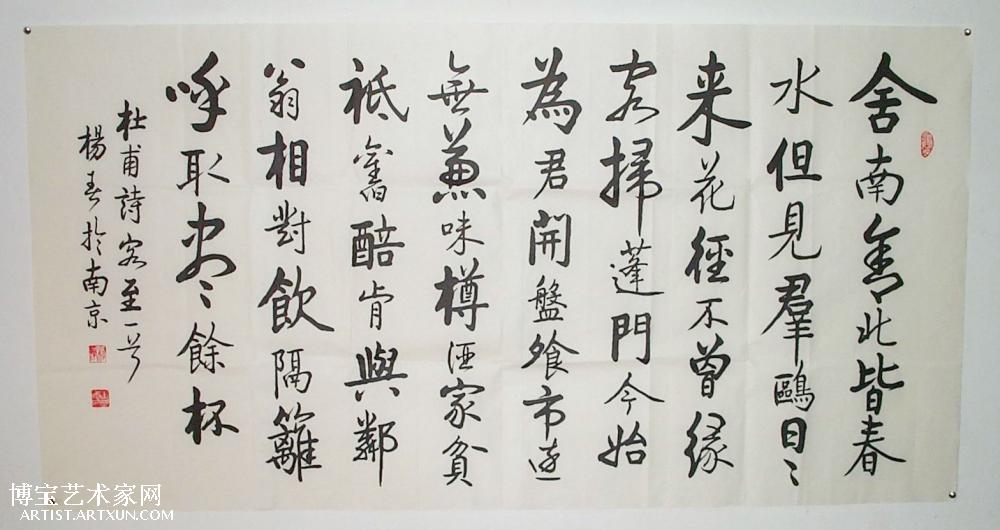 舍南舍北皆春
水但見羣鷗日〻
来花徑不曾緣
客掃蓬門今始
為君開盤飧市遠
無兼味樽酒家貧
祗舊醅肯與鄰
翁相對飲隔籬
呼取盡〻餘杯
杜甫詩客至一首
楊春於南京
博宝艺术家网
ARTIST.ARTXUN.COM